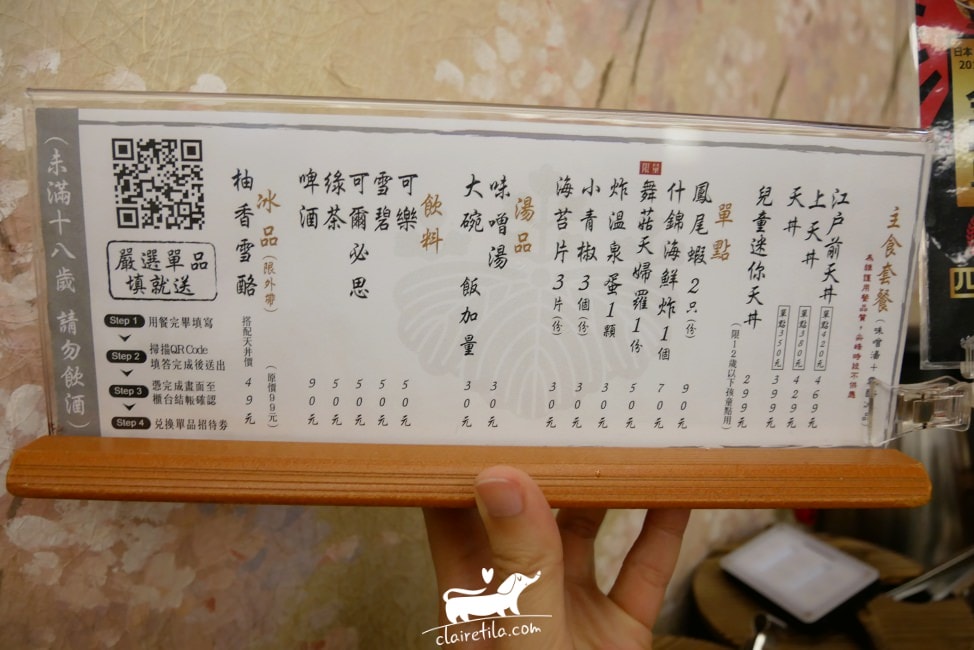 主食套餐
(味噌湯+
為維護用餐品質,尖峰時段不供應
江戶前天丼 單點420元 469元
上天丼 單點380元 429元
天丼 單點350元 399元
兒童迷你天丼 299元
(限12歲以下孩童點用)
單點
鳳尾蝦2只(份) 90元
什錦海鮮炸1個 70元
限量
舞菇天婦羅1份 50元
炸溫泉蛋1顆 30元
小青椒3個(份) 30元
海苔片3片(份) 30元
湯品
味噌湯 30元
大碗 飯加量 30元
飲料
可樂 50元
雪碧 50元
可爾必思 50元
綠茶 50元
啤酒 90元
冰品(限外帶)
(原價99元)
柚香雪酪 搭配天丼價 49元
嚴選單品
填就送
Step 1 用餐完畢填寫
Step 2 掃描QR Code
填答完成後送出
Step 3 憑完成畫面至
櫃台結帳確認
Step 4 兌換單品招待券
(未滿十八歲 請勿飲酒)
日本
clairetila.com